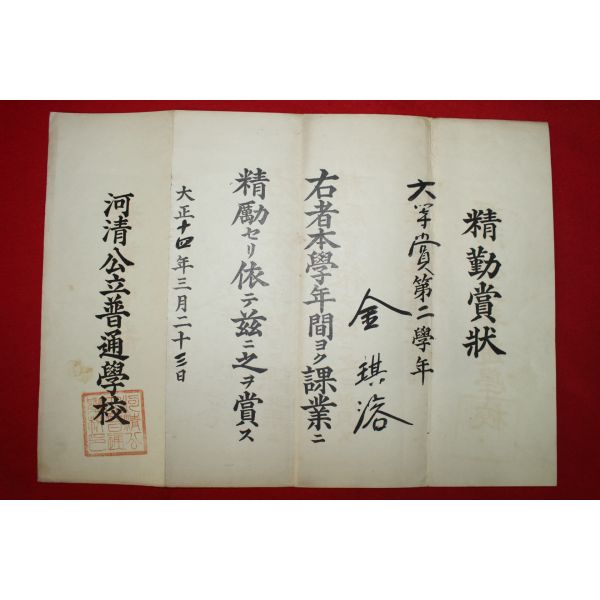 精勤賞狀
賞第二學年
金琪洛
右者本學年間ヨク課業ニ
精勵セリ依テ茲ニ之ヲ賞ス
大正十四年三月二十三日
河清公立普通學校